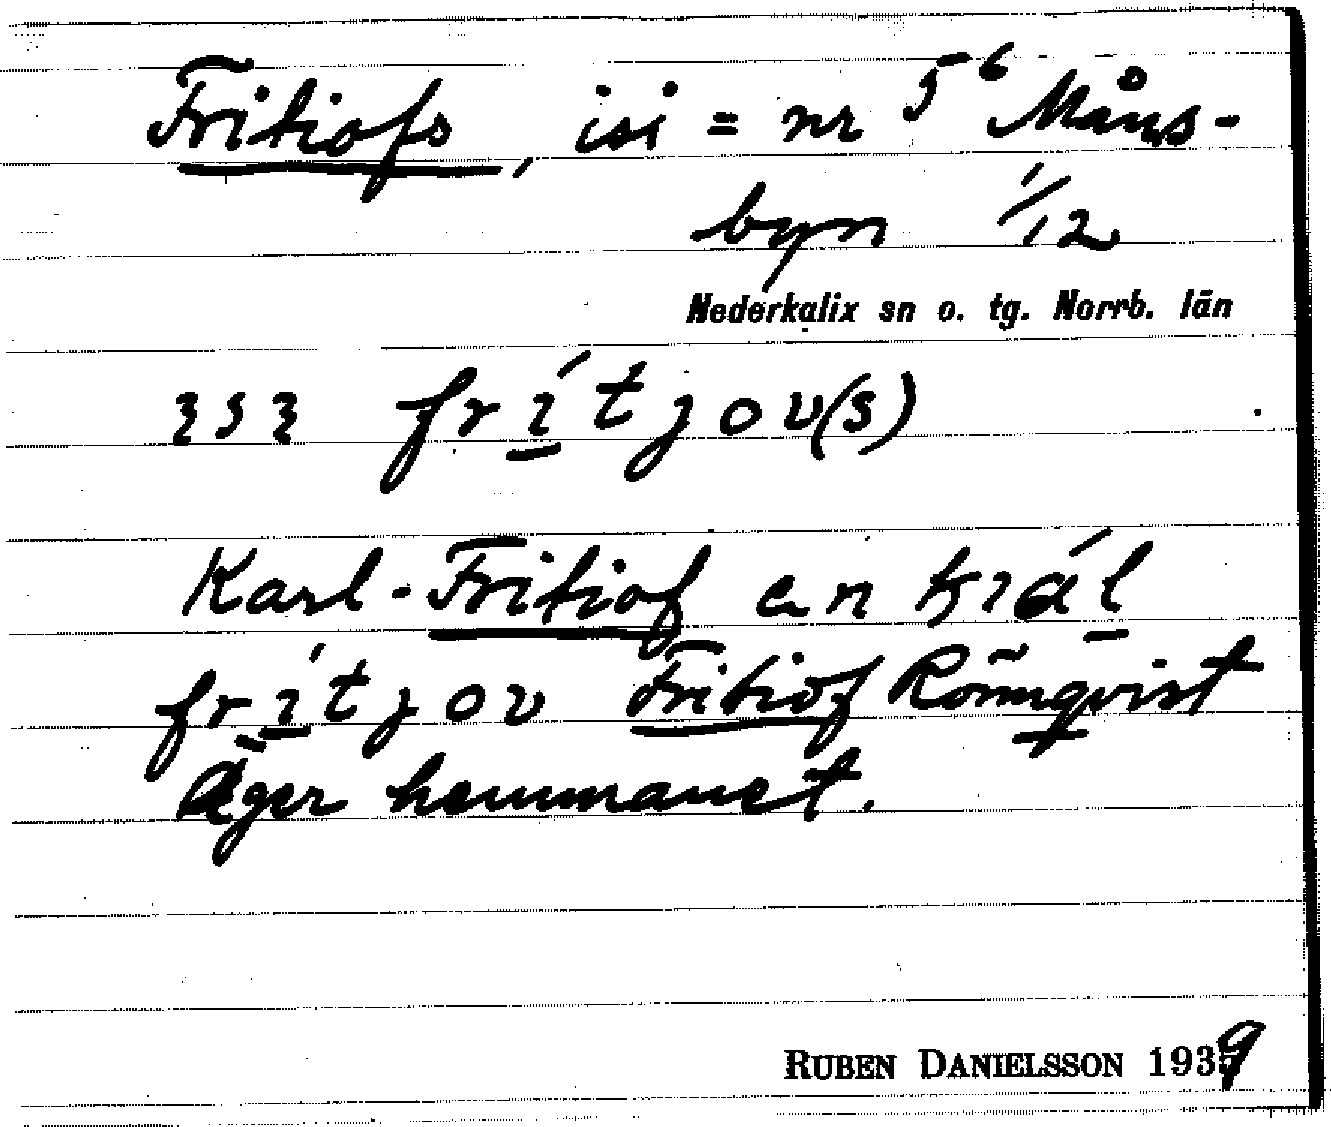 Fritiofs, isi = nr 5⁶ Måns-
byn 1/12
Nederkalix sn o. tg. Norrb. län
ɪsɪ frítjov(s)
Karl-Fritiof en kɪál
frítjov Fritiof Rönnqvist
Äger hemmanet.
RUBEN DANIELSSON 1939